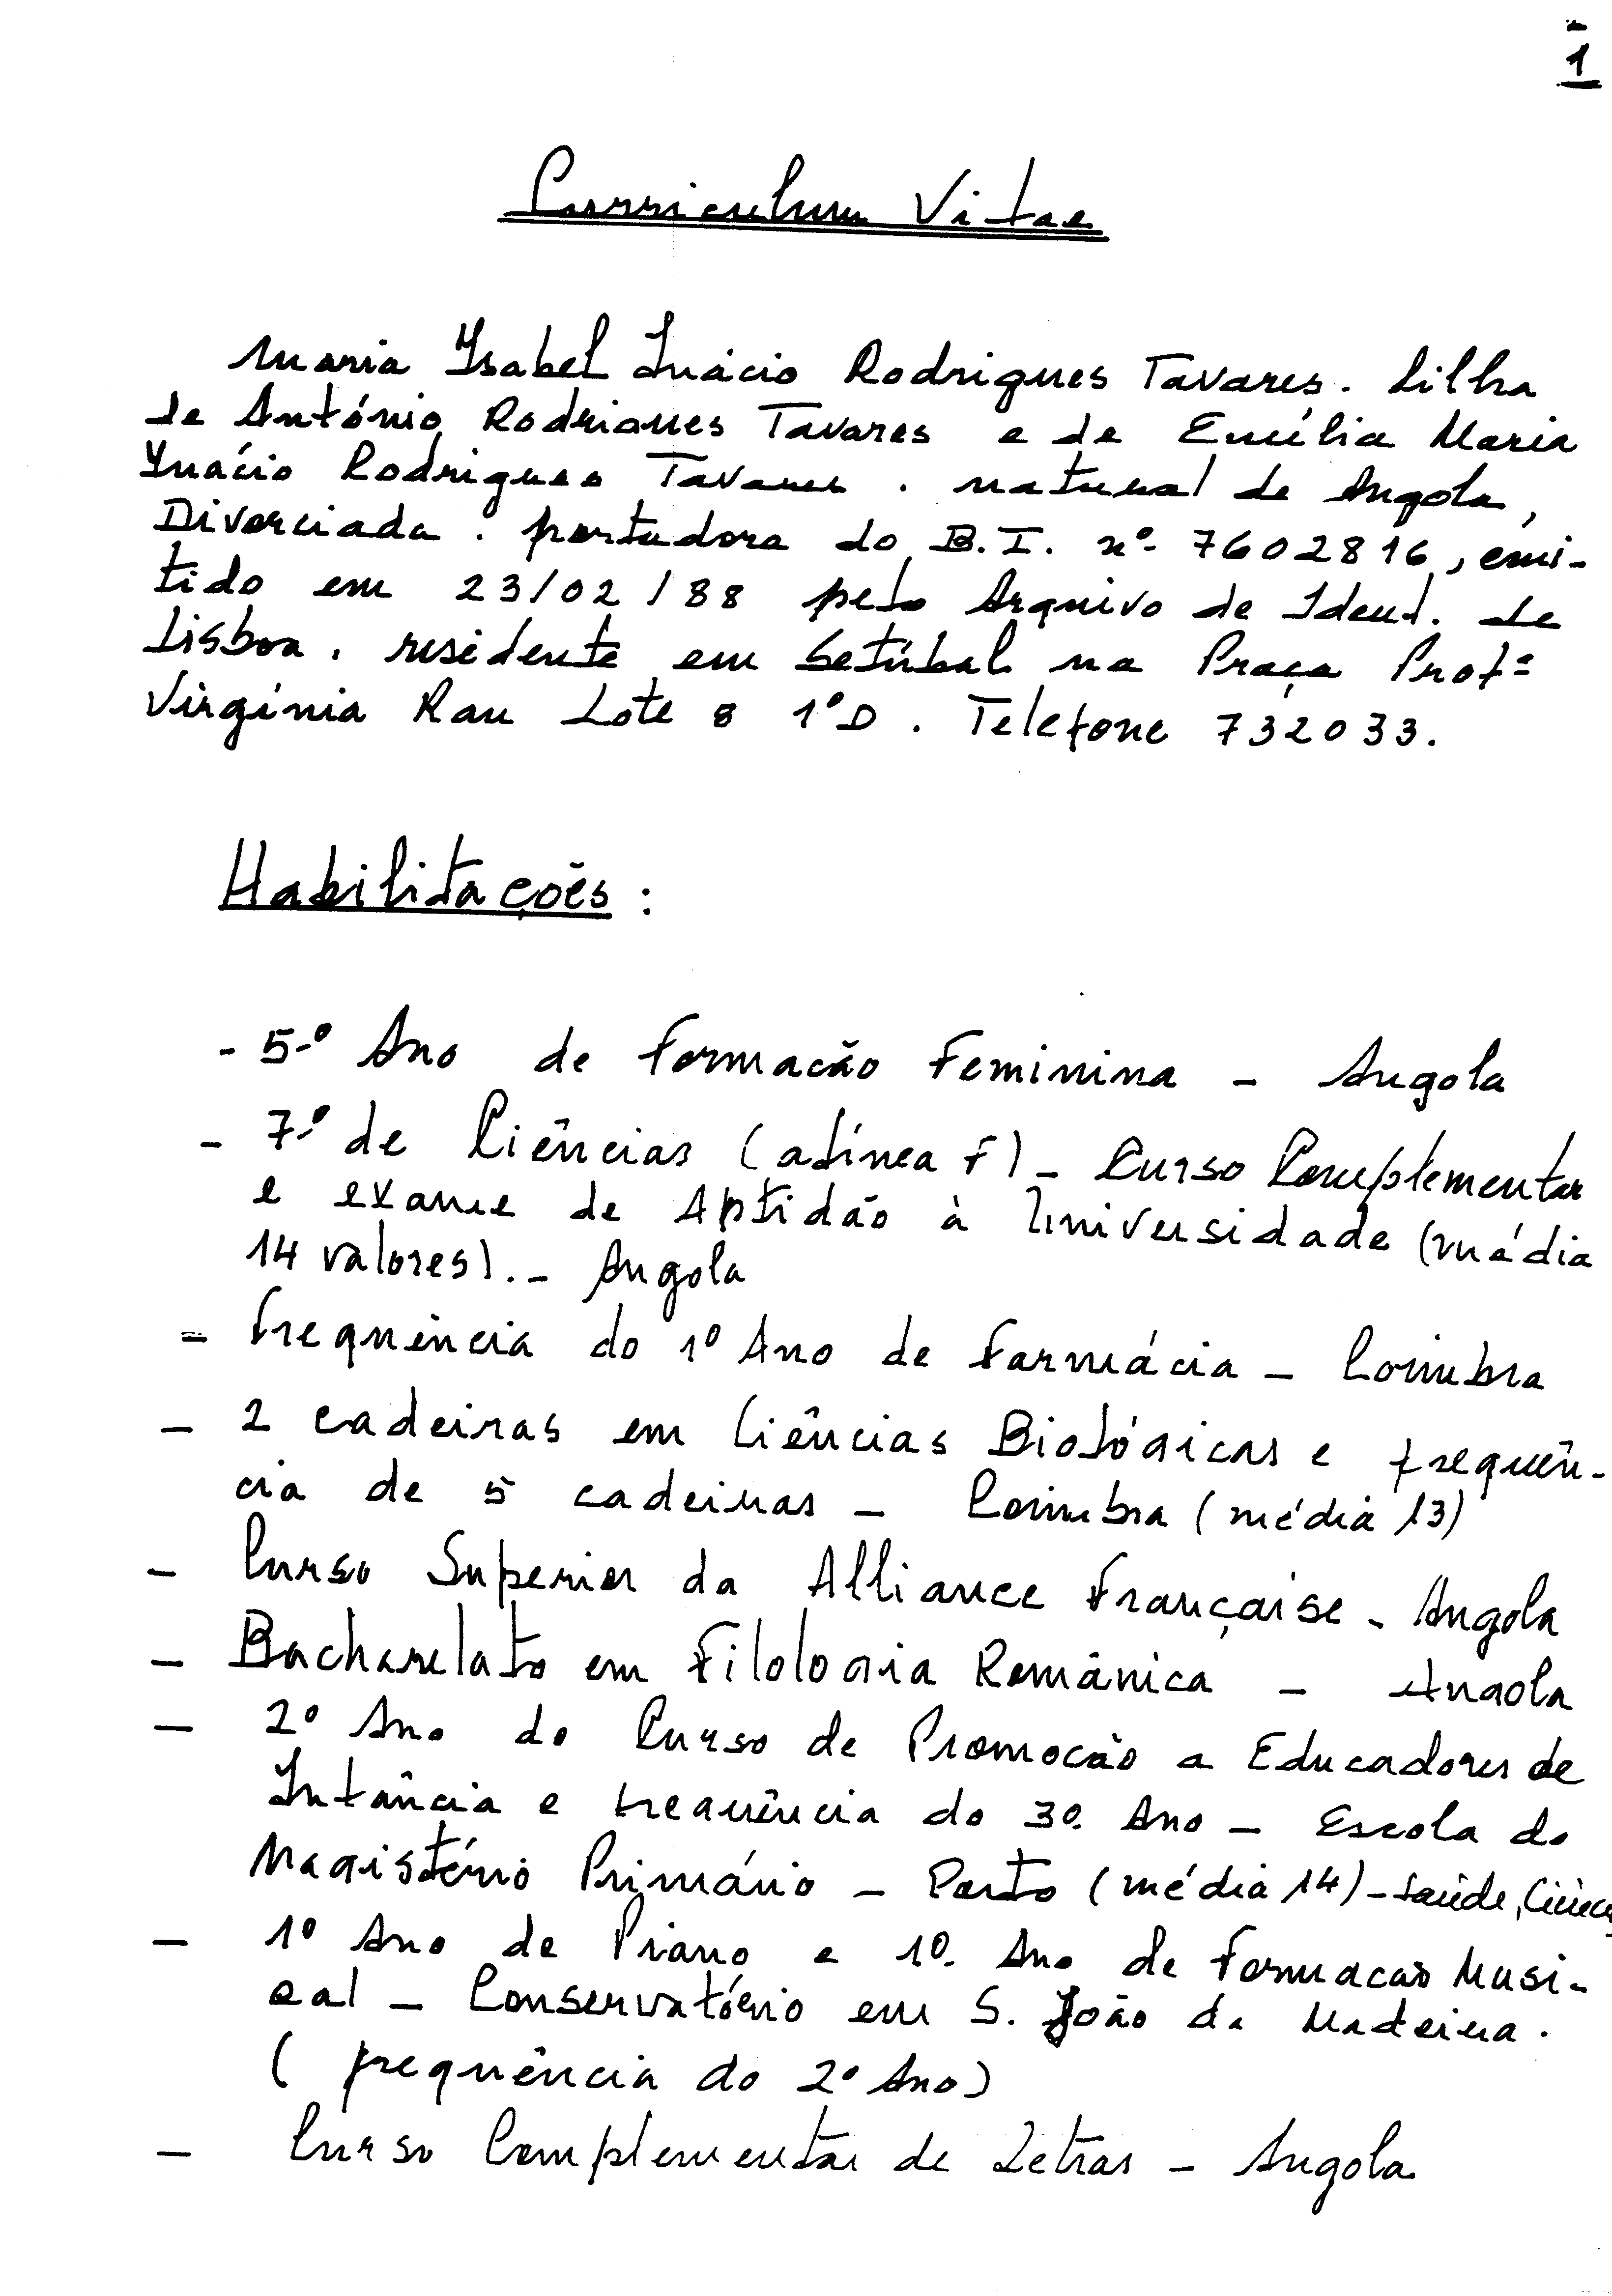 1
Curriculum Vitae
Maria Isabel Inácio Rodrigues Tavares. Filha
de António Rodrigues Tavares e de Emília Maria
Inácio Rodrigues Tavares. natural de Angola,
Divorciada. portadora do B.I. nº 7602816, emi-
tido em 23/02/88 pelo Arquivo de Ident. de
Lisboa. residente em Setúbal na Praça Profª
Virgínia Rau Lote 8 1ºD. Telefone 732033.
Habilitações:
- 5º Ano de Formação Feminina - Angola
- 7º de Ciências (alínea F) - Curso Complementar
e exame de Aptidão à Universidade (média
14 valores). - Angola
- Frequência do 1º Ano de Farmácia - Coimbra
- 2 cadeiras em Ciências Biológicas e frequên-
cia de 5 cadeiras - Coimbra (média 13)
- Curso Superior da Alliance Française - Angola
- Bacharelato em Filologia Românica - Angola
- 2º Ano do Curso de Promoção a Educadores de
Infância e frequência do 3º Ano - Escola do
Magistério Primário - Porto (média 14) - Saúde,
- 1º Ano de Piano e 1º Ano de Formação Musi-
cal - Conservatório em S. João da Madeira.
(frequência do 2º Ano)
- Curso Complementar de Letras - Angola